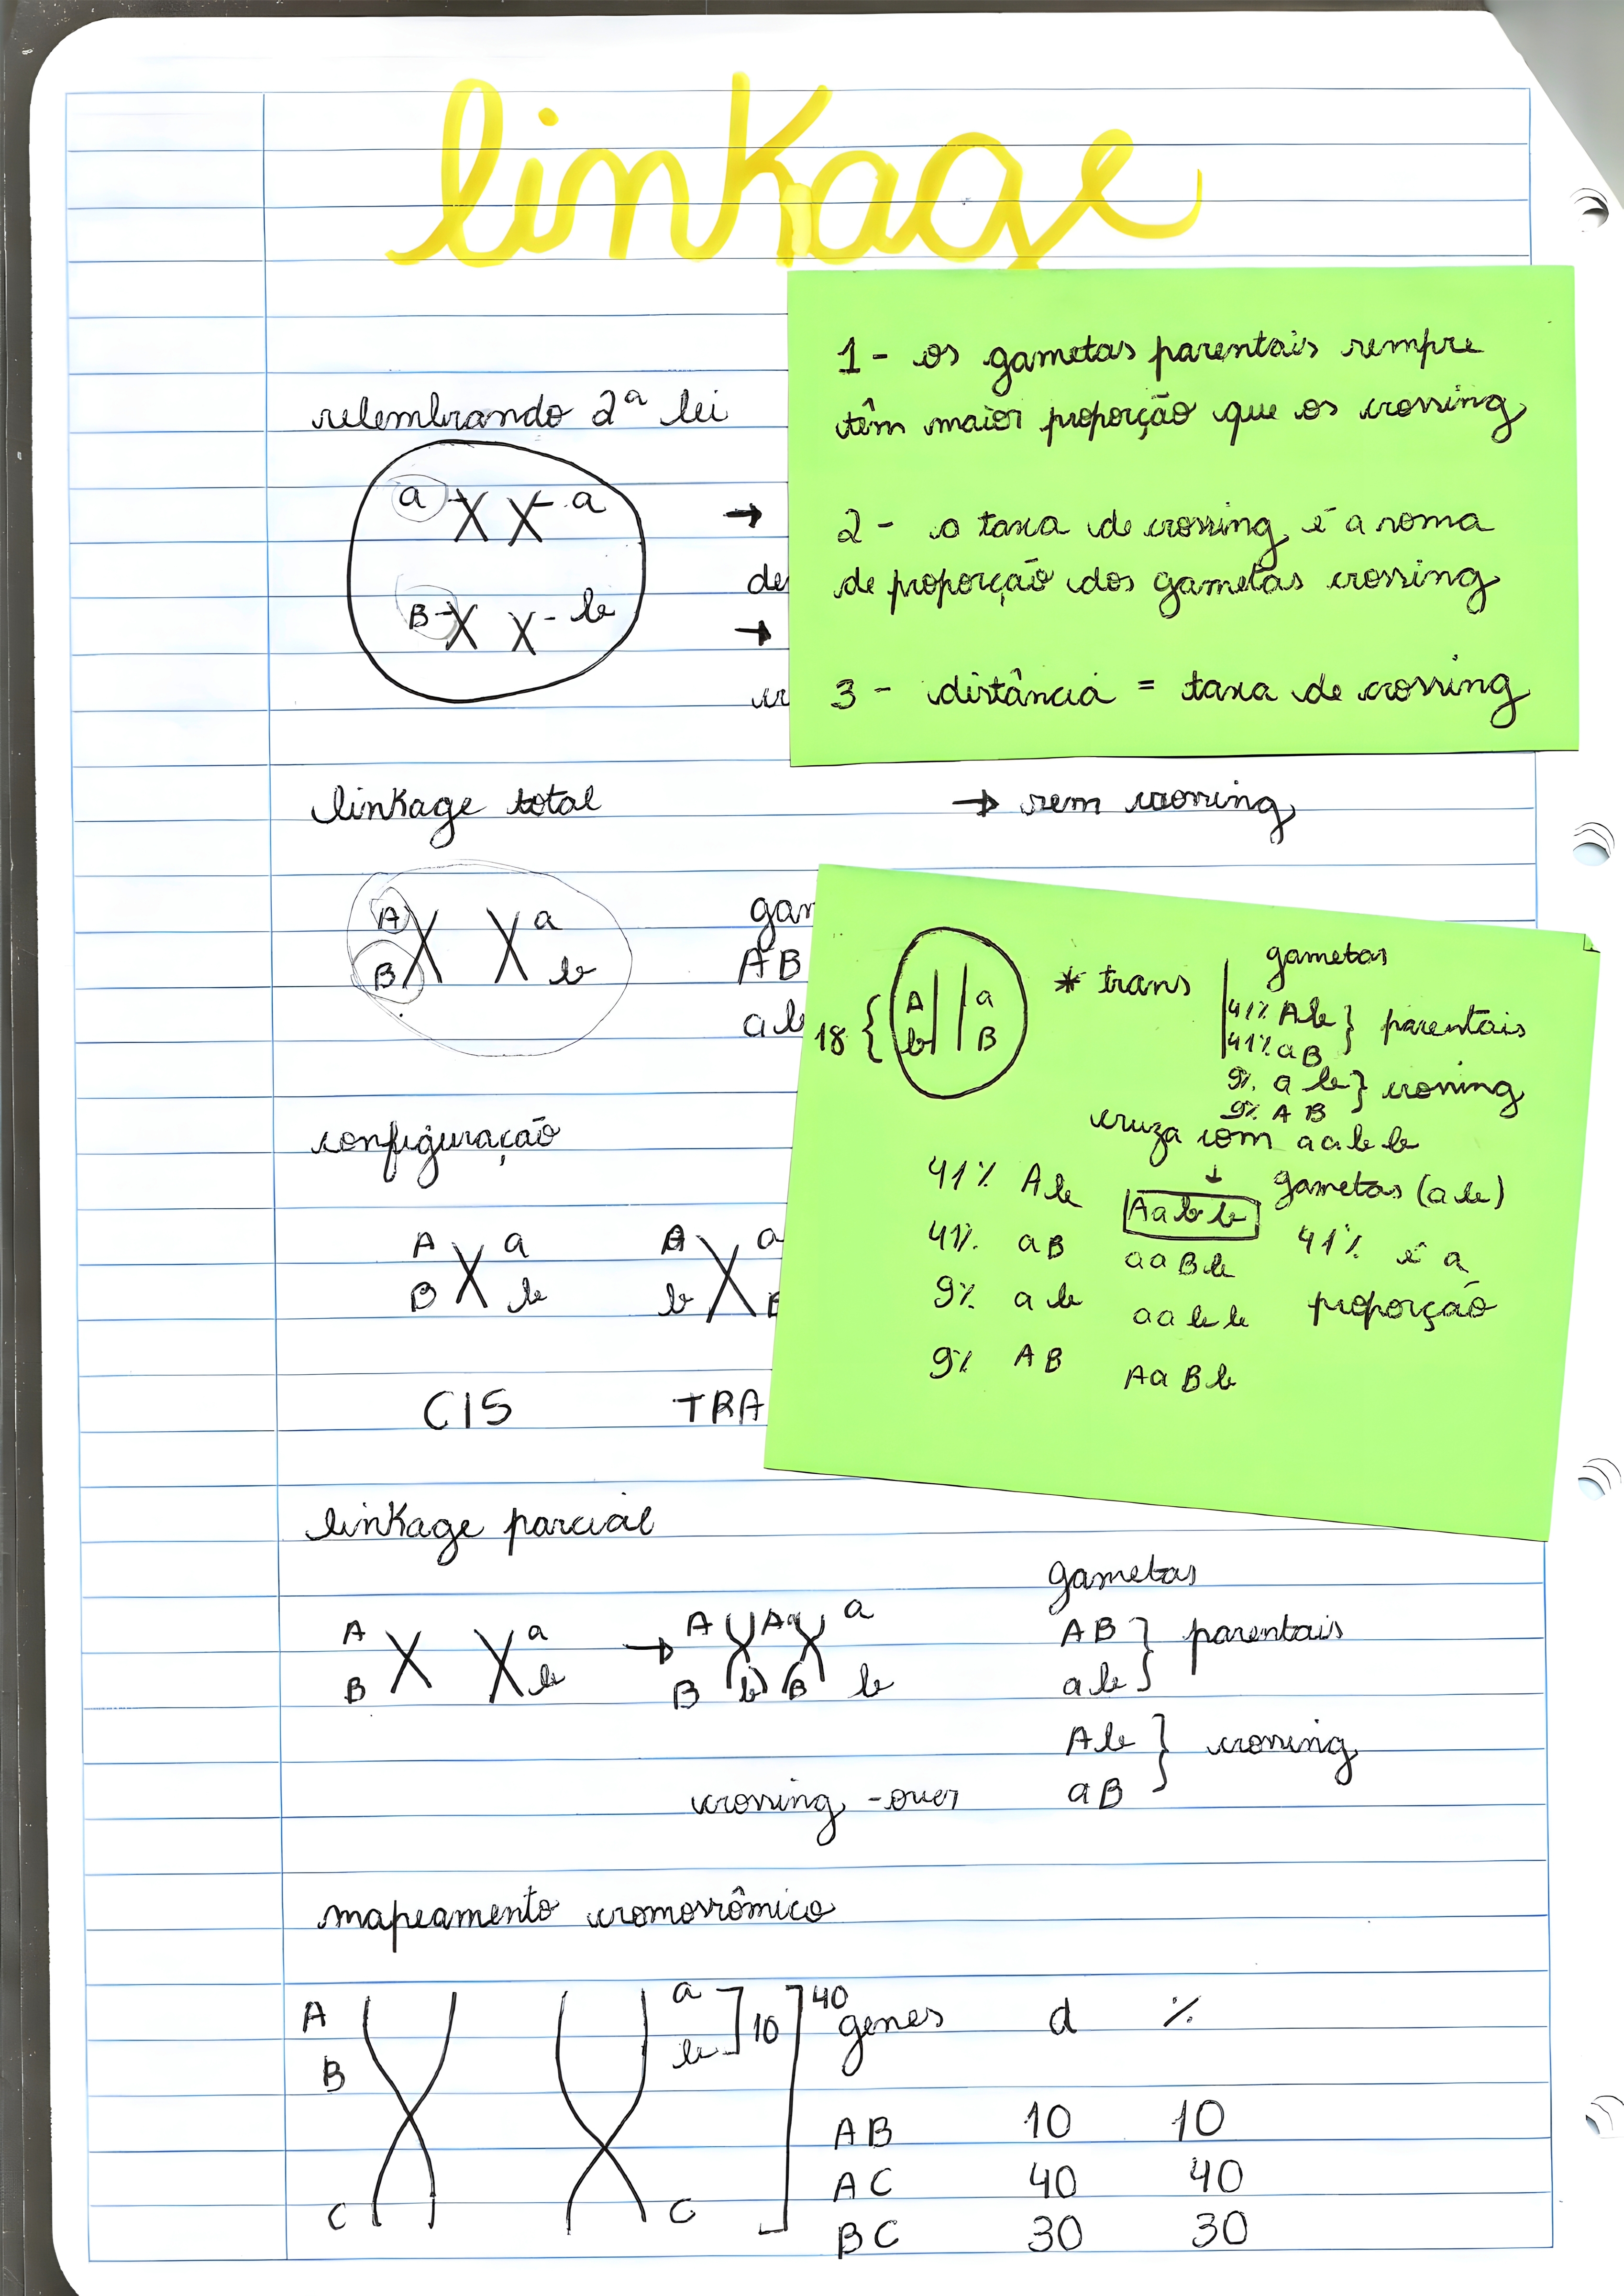 linkage
relembrando 2ª lei
a X X a
B X X b
→
de
→
cr
1 - os gametas parentais sempre
têm maior proporção que os crossing
2 - a taxa de crossing é a soma
de proporção dos gametas crossing
3 - distância = taxa de crossing
linkage total → sem crossing
A a
B b
gam
AB
ab
18 { A a
b B
* trans
gametas
41% Ab } parentais
41% aB
9% ab } crossing
9% AB
cruza com aabb
↓
41% Ab Aabb gametas (ab)
41% aB aaBb 41% é a
9% ab aabb proporção
9% AB AaBb
configuração
A a A a
B b b B
CIS TRA
linkage parcial
gametas
A a → A A a a
B b B b B b
AB } parentais
ab
Ab } crossing
aB
crossing-over
mapeamento cromossômico
A a ] 10 ] 40 genes d %
B b
AB 10 10
AC 40 40
C C BC 30 30